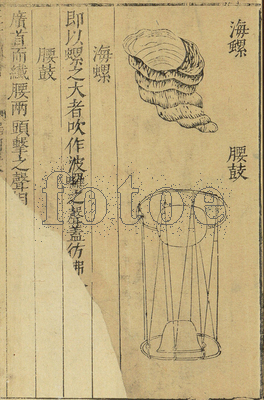 海螺
腰鼓
海螺
即以螺之大者吹作波囉之聲蓋仿佛
腰鼓
廣首而纖腰兩頭擊之聲相
fotoe